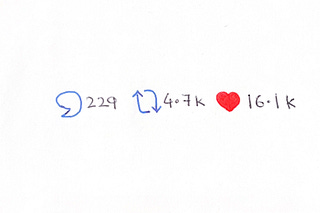 229 4.7k 16.1k